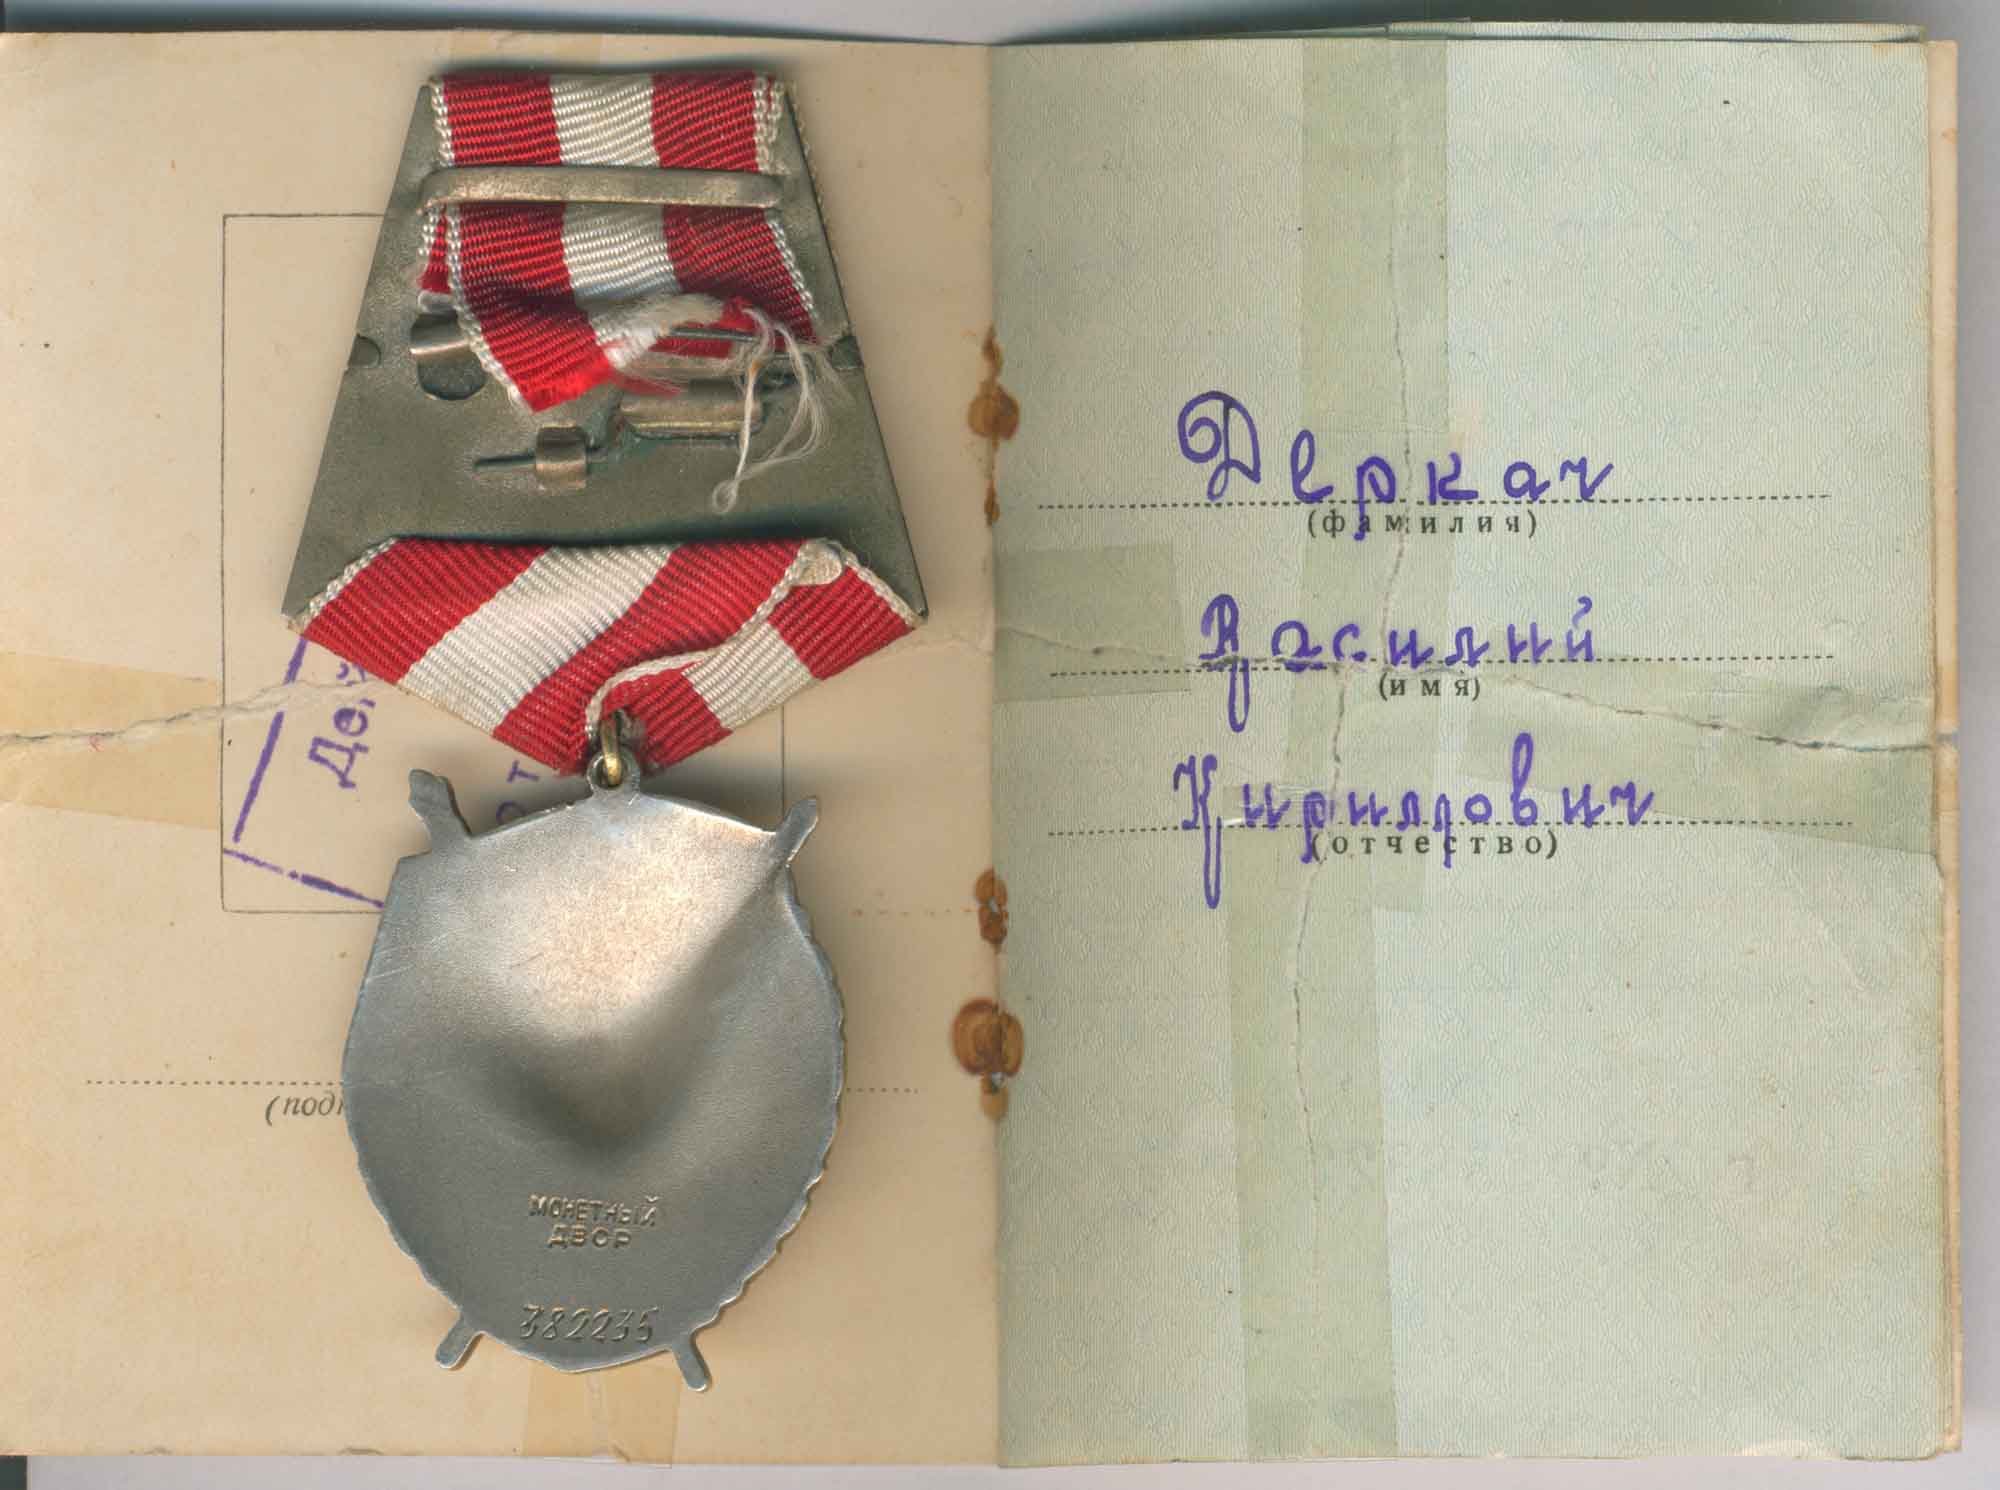 (под
МОНЕТНЫЙ
ДВОР
382235
Деркач
(фамилия)
Василий
(имя)
Кириллович
(отчество)